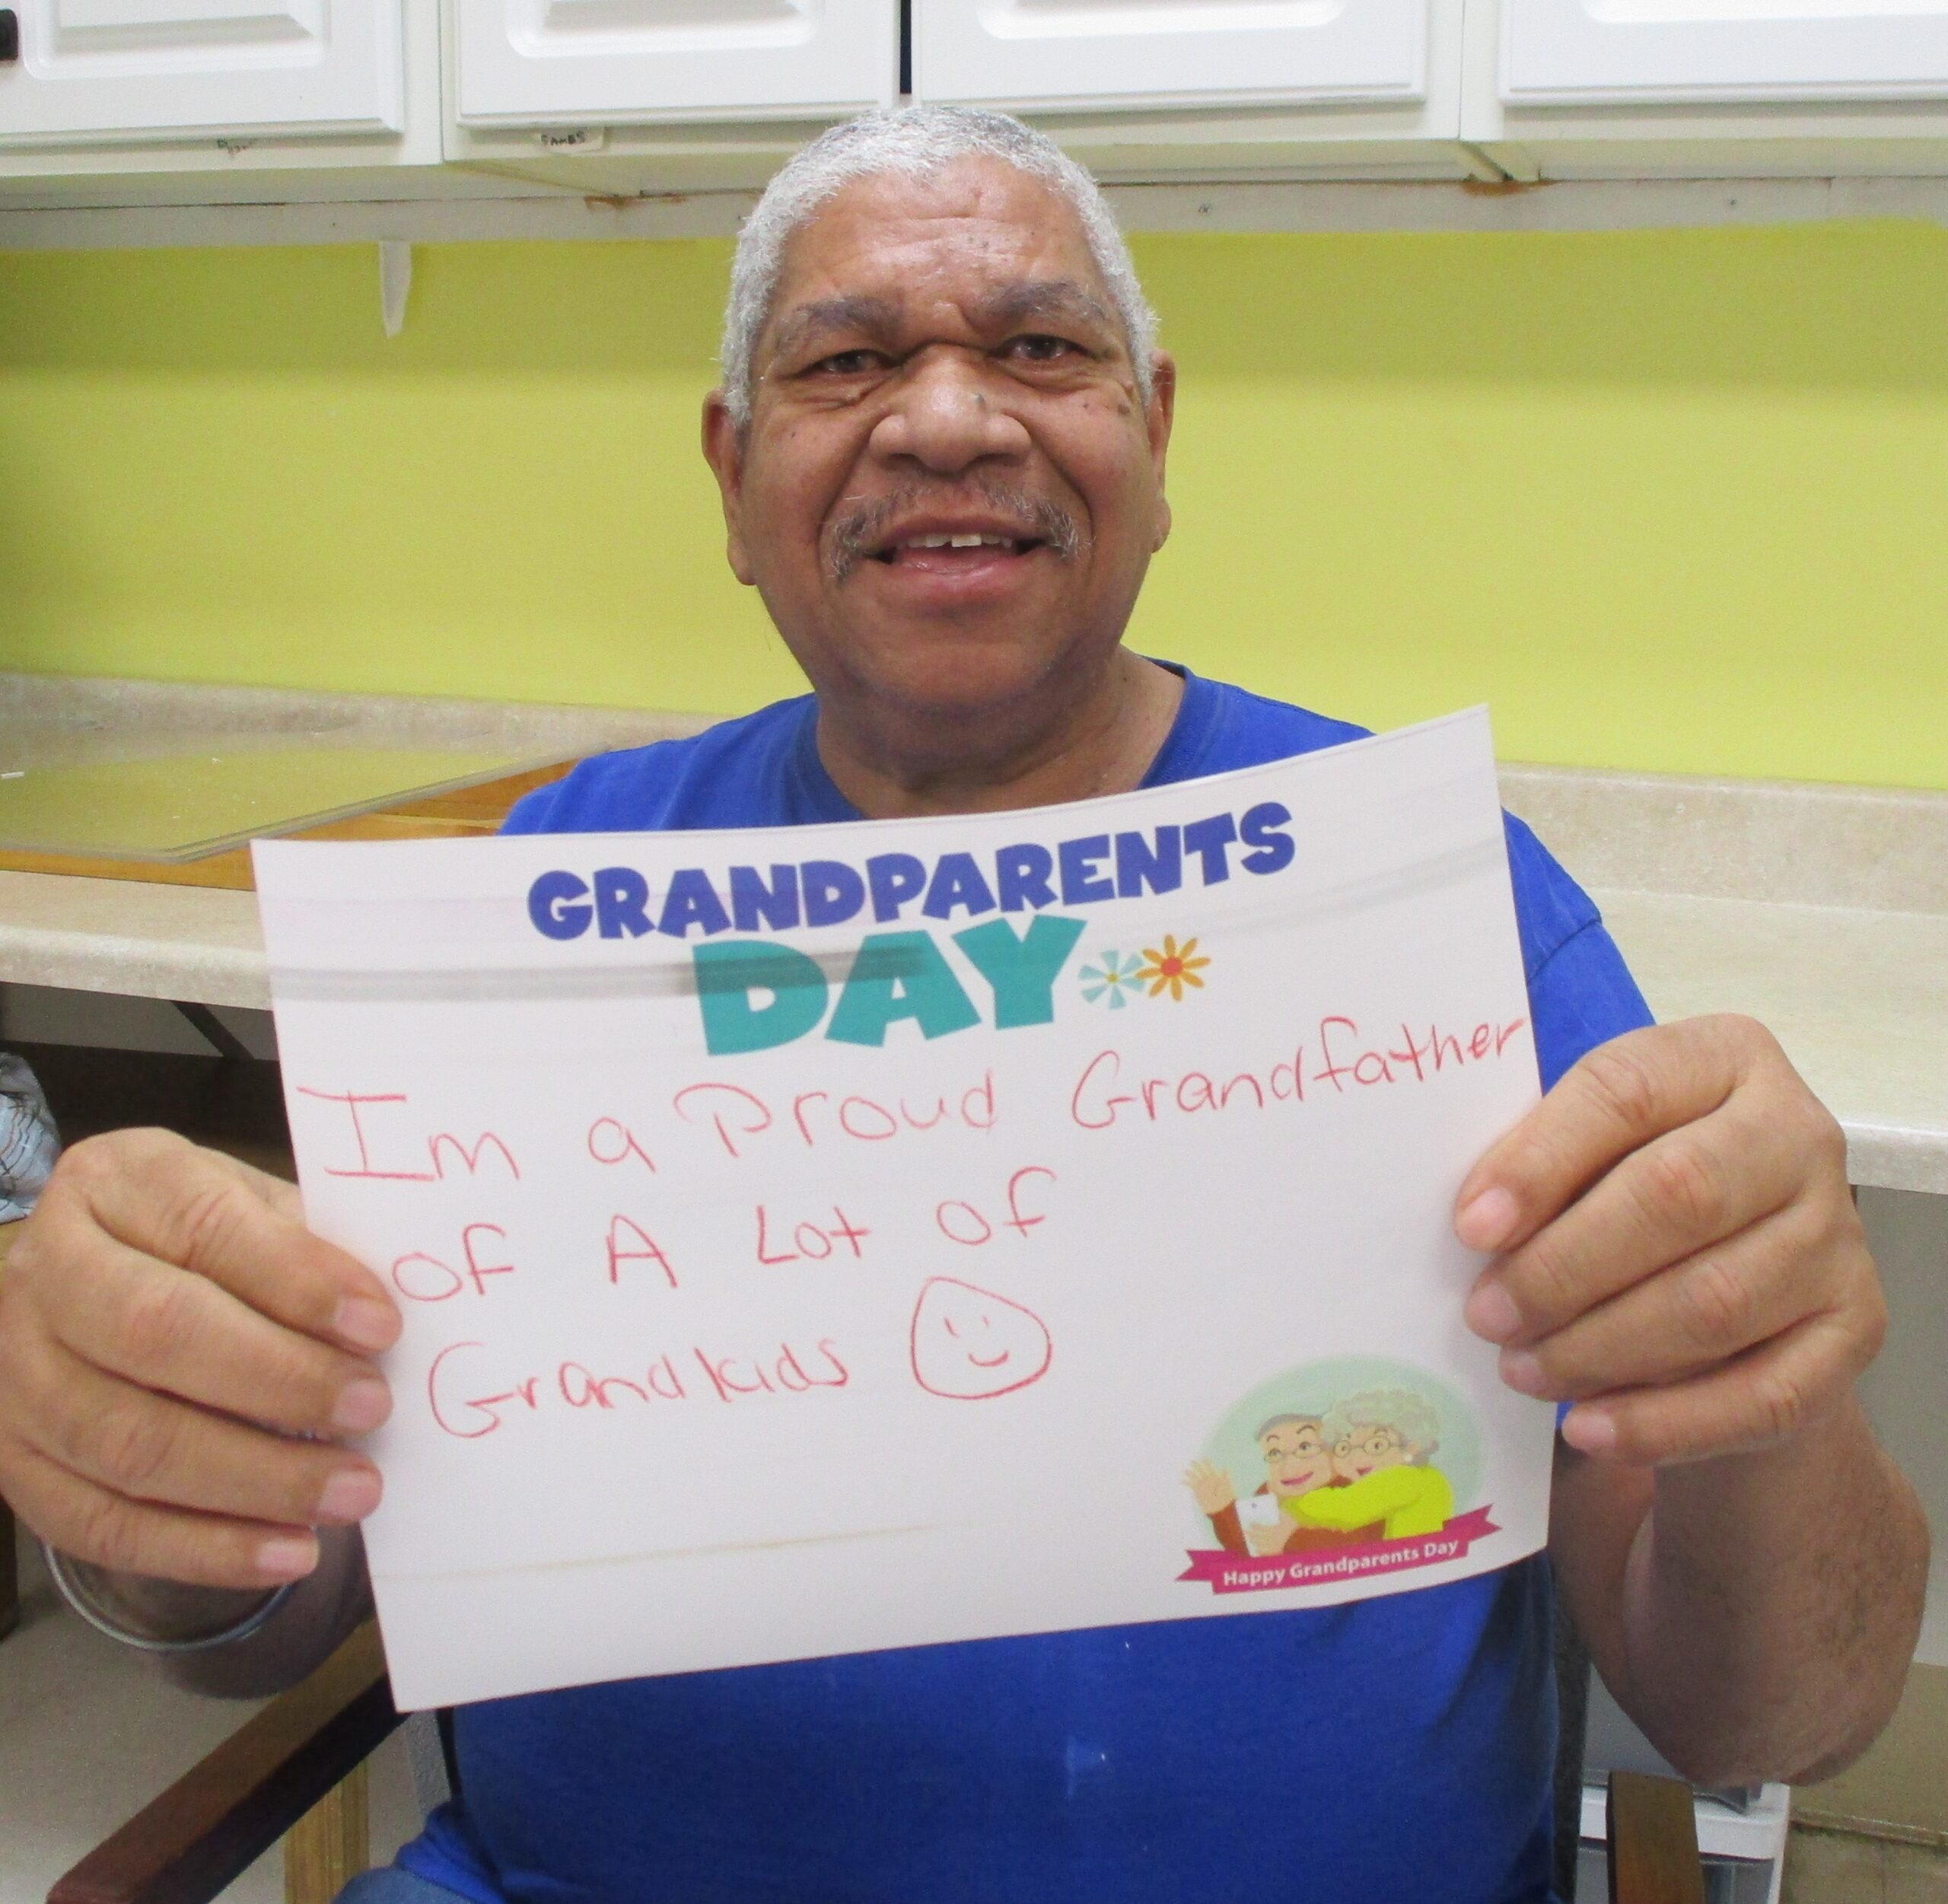 SAMBS
GRANDPARENTS
DAY
Im a Proud Grandfather
of A Lot of
Grandkids
Happy Grandparents Day